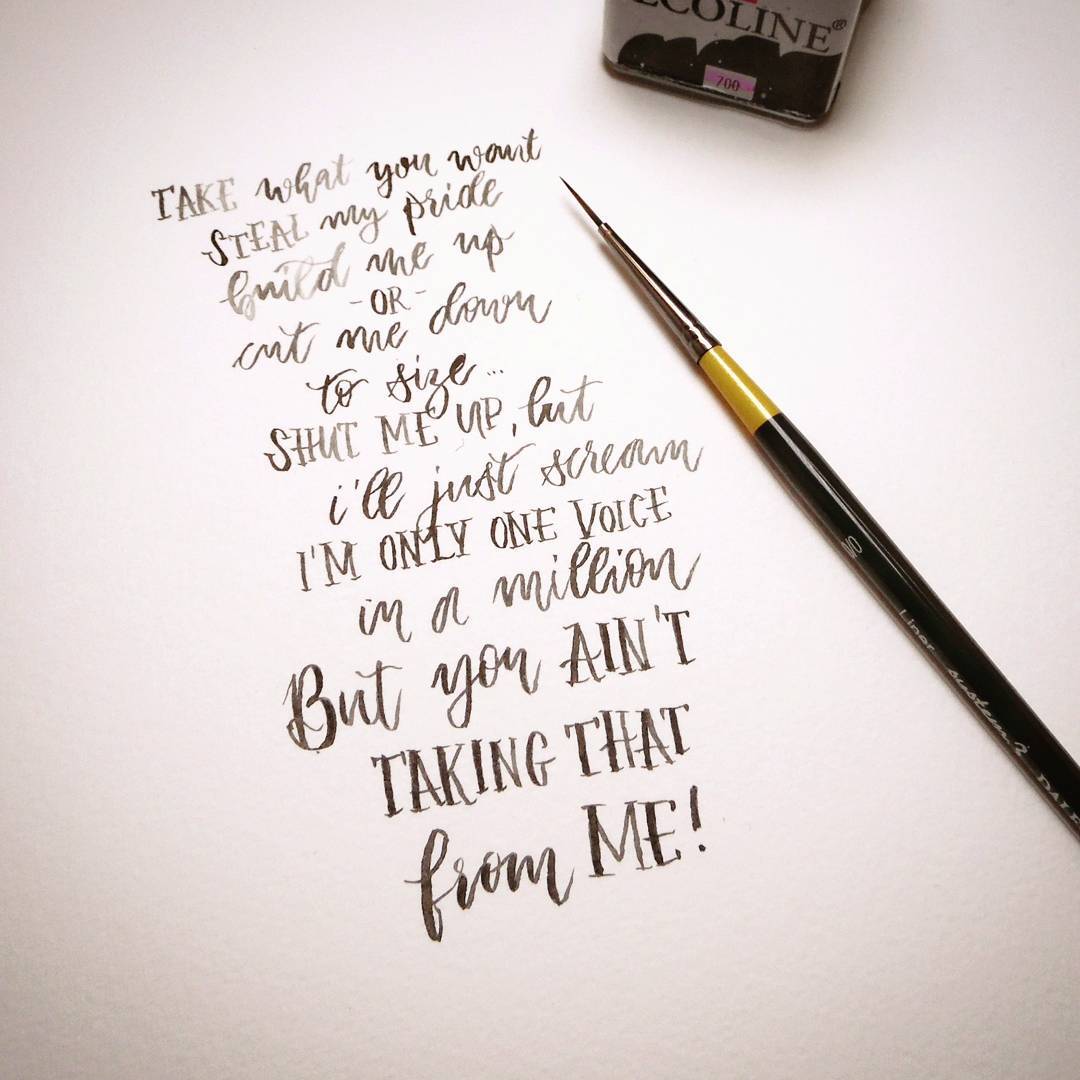 ECOLINE®
700
TAKE what you want
STEAL my pride
build me up
-OR-
cut me down
to size...
SHUT ME UP, but
i'll just scream
I'M ONLY ONE VOICE
in a million
But you AIN'T
TAKING THAT
from ME!
Liner System 3 DALE